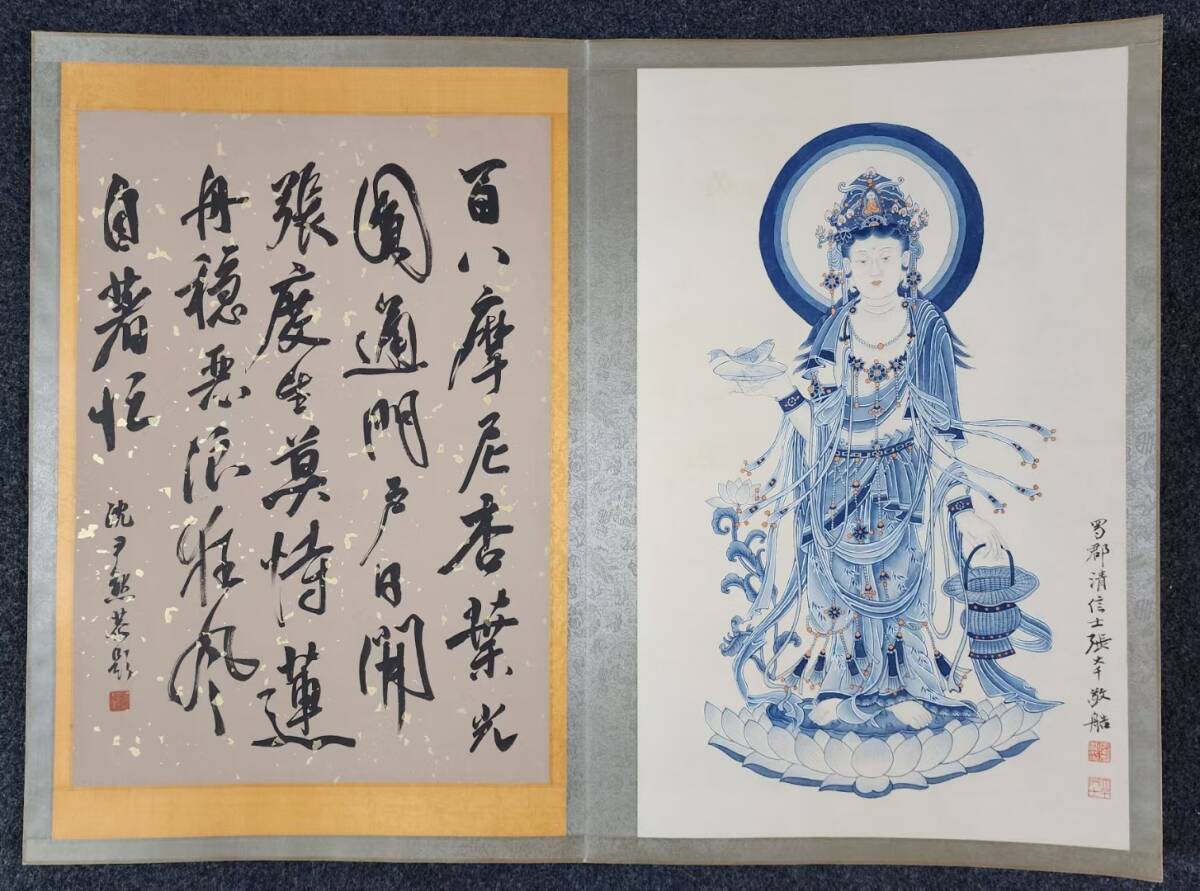 蜀郡清信士張大千敬
百八摩尼杏葉光
圓通門戶日開
張度生莫恃蓮
舟穩惡浪狂風
自著忙
沈尹默恭題